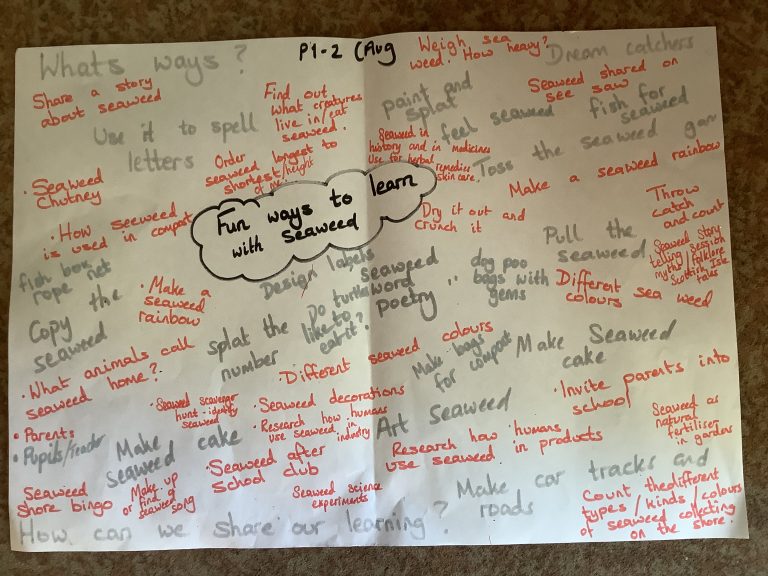 Whats ways?
P1-2 (Aug
Weigh sea
weed. How heavy?
Dream catchers
Share a story
about seaweed
Find out
what creatures
live in/eat
seaweed.
paint and
splat
Seaweed shared on
see saw
Use it to spell
letters
feel seaweed
fish for
seaweed
Order
seaweed longest to
shortest/heights
of me!
Seaweed in
history and in medicines
Use for herbal remedies
skin care.
Toss the seaweed
· Seaweed
Chutney
Fun ways to learn
with seaweed
Make a seaweed rainbow
· How seeweed
is used in compost
Dry it out and
crunch it
Throw
catch
and count
Pull the
seaweed
Seaweed story
telling session
myths/folklore
Scottish Isle
tales
fish box
rope net
· Make a
seaweed
rainbow
Design labels
seaweed
word
poetry
dog poo
bags with
gems
Different sea weed
colours
Copy the
seaweed
splat the
number
Do turtles
like to
eat it?
· What animals call
seaweed home?
· Different seaweed colours
Make bags
for compost
Make Seaweed
cake
· Seaweed scavenger
hunt - identify
seaweed
· Seaweed decorations
· Research how humans
use seaweed in
industry
Art seaweed
· Invite parents into
school
· Parents
· Pupils/Teacher
Make
seaweed cake
· Seaweed after
school club
Research how humans
use seaweed in products
Seaweed as
natural
fertiliser
in garden
Seaweed
shore bingo
Make up
or find a
seaweed song
Seaweed Science
experiments
Make car tracks and
roads
Count the different
types/kinds/colours
of seaweed collecting
on the shore.
How can we share our learning?